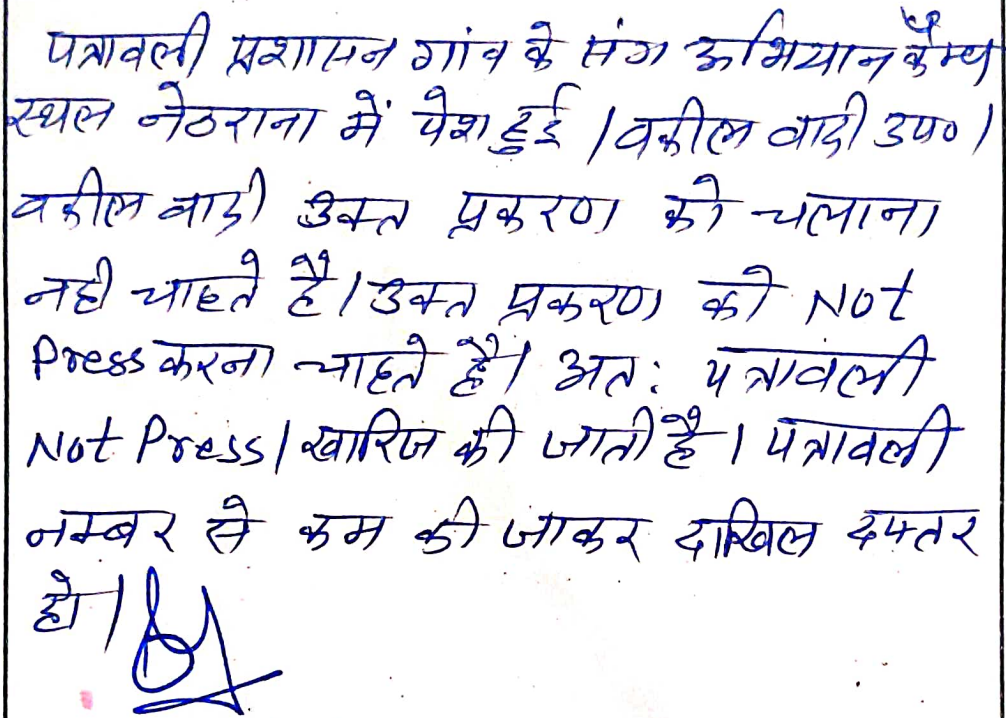 पत्रावली प्रशासन गांव के संग अभियान कैम्प
स्थल नेठराना में पेश हुई । वकील वादी उप० ।
वकील वादी उक्त प्रकरण को चलाना
नही चाहते है । उक्त प्रकरण को Not
Press करना चाहते है । अतः पत्रावली
Not Press / खारिज की जाती है । पत्रावली
नम्बर से कम की जाकर दाखिल दफ्तर
हो ।